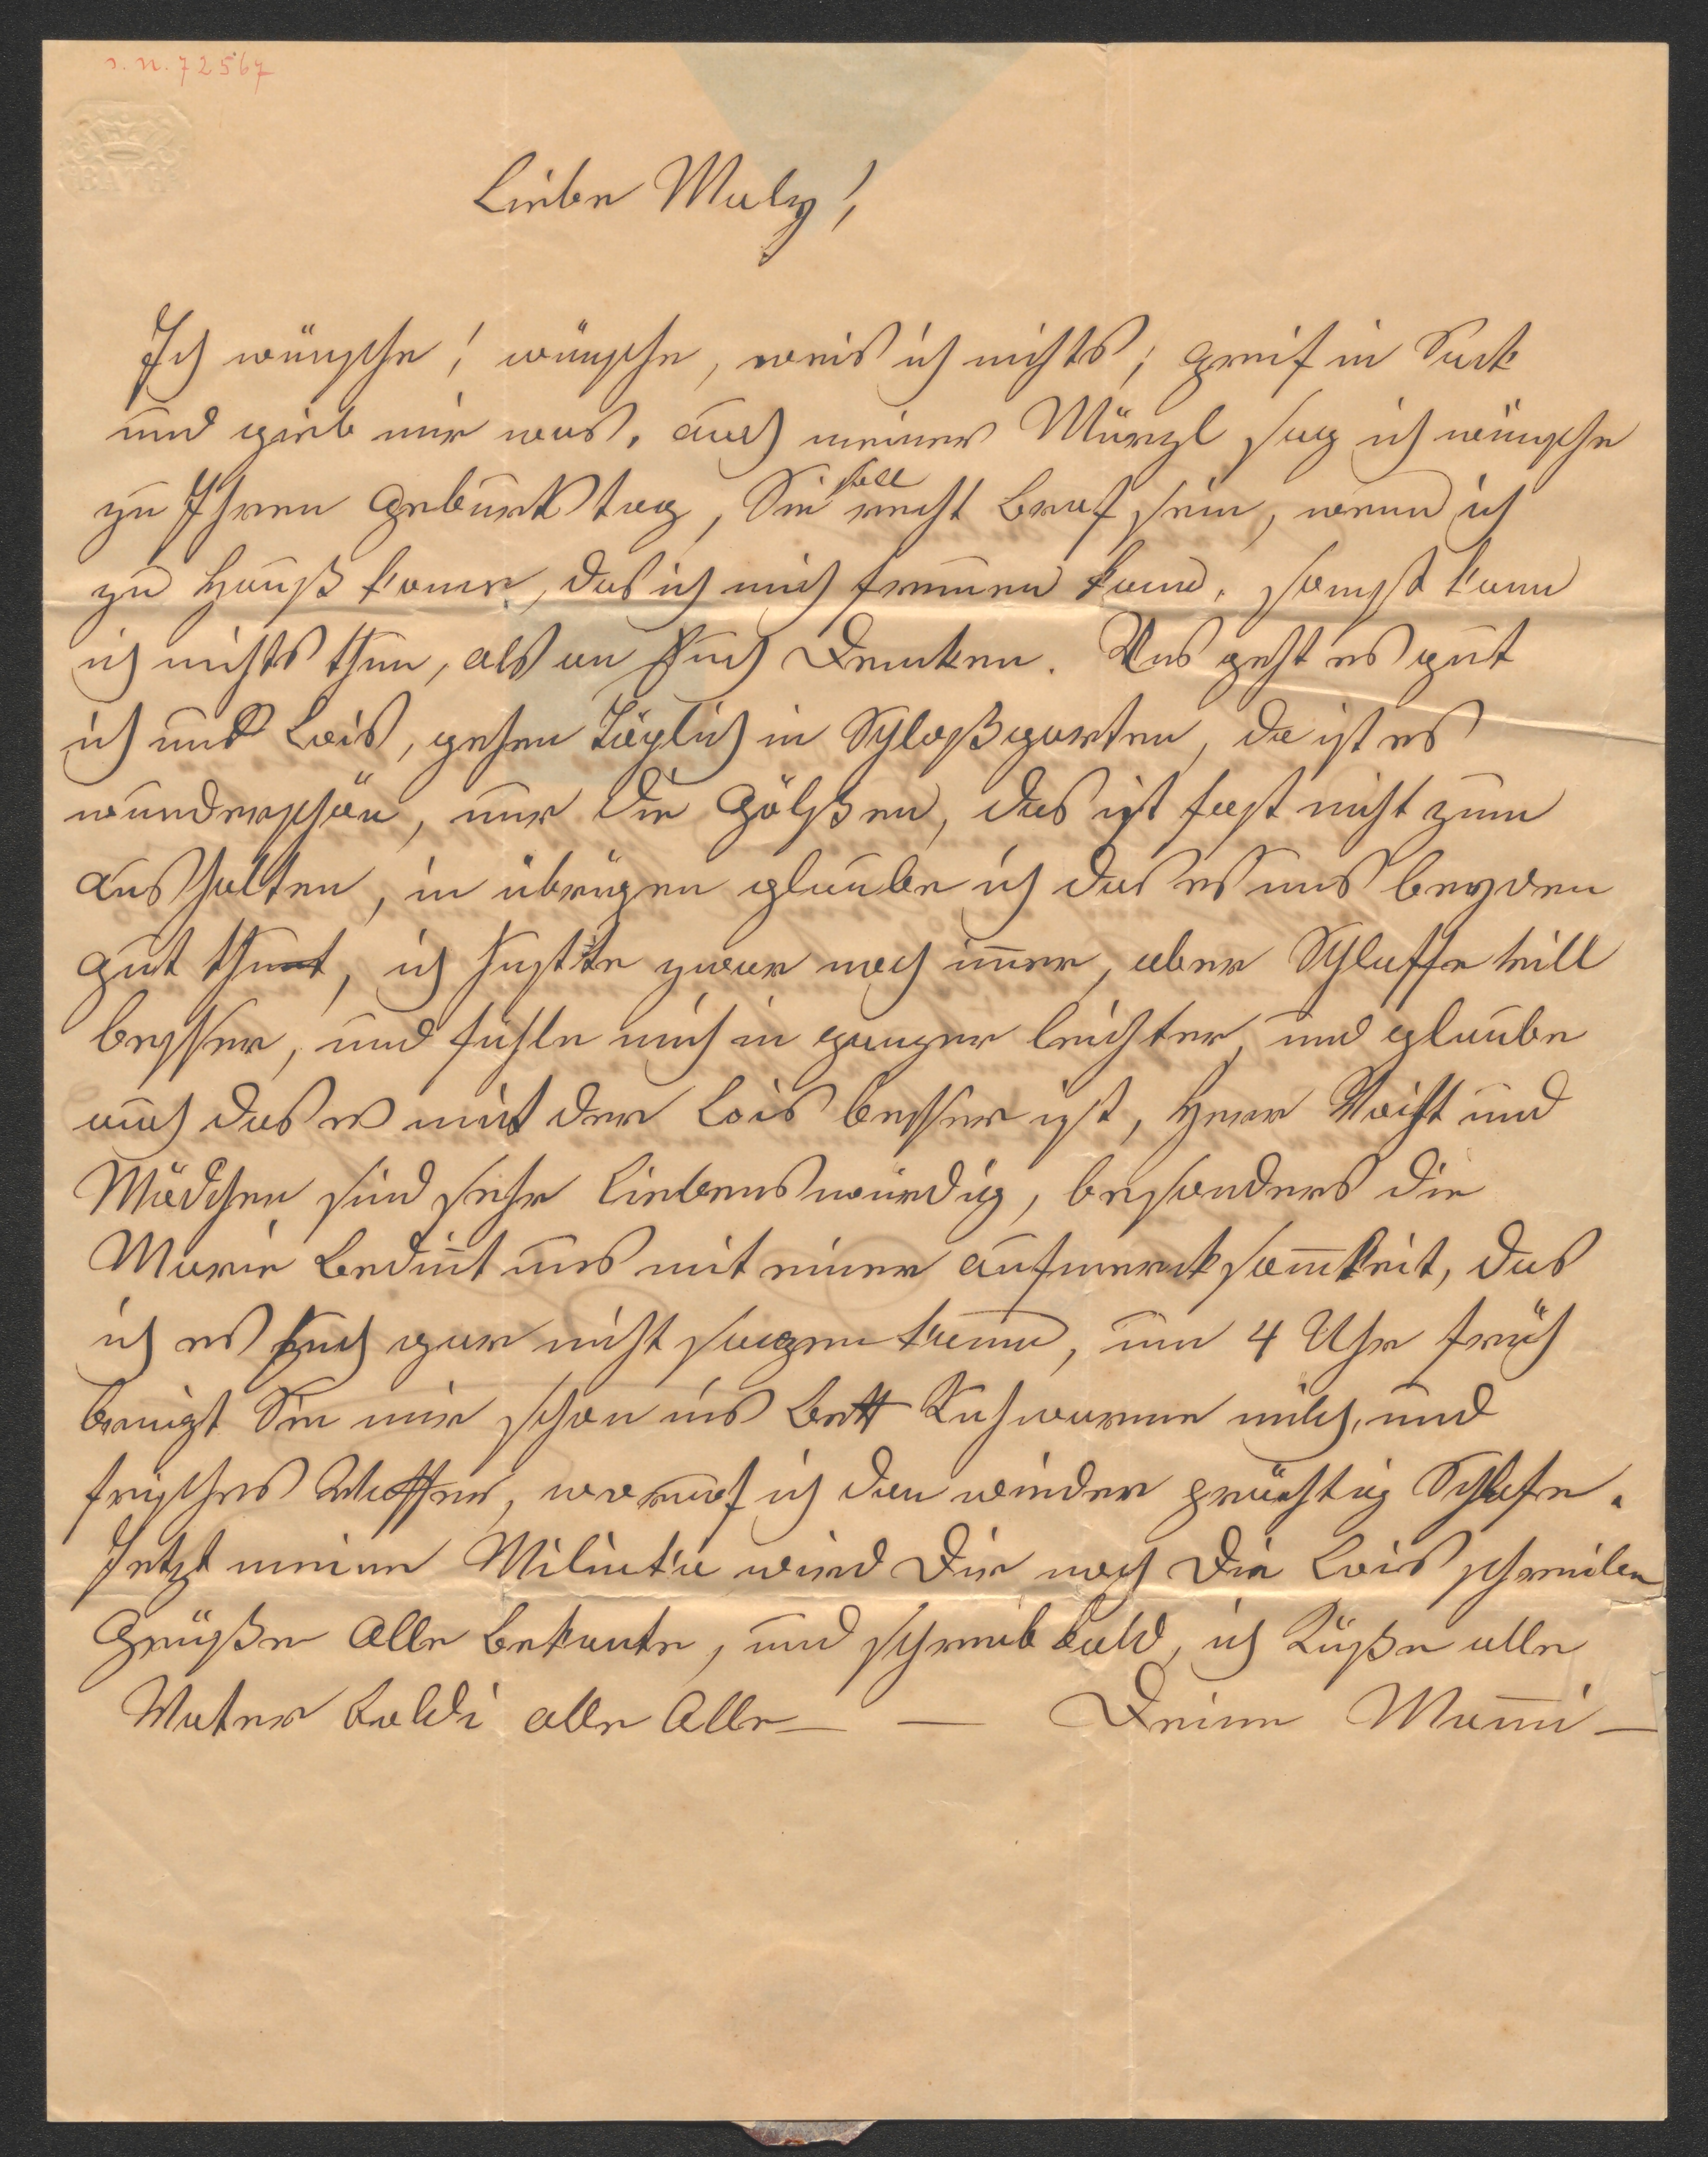 s. n. 72567
BATH
Liebe Maly!
Ich wünsche! wünsche, weis ich nichts; greif in Sack
und gieb mir was. auch meiner Märzl sag ich wünsche
zu Ihren Geburtstag, Sie soll recht Braf sein, wenn ich
zu Hauß kome, das ich mich freuen kann. sonst kann
ich nichts thun, als an Euch Denken. Uns geht es gut
ich und Lois, gehen Täglich in Schloßgarten, da ist es
wunderschön, nur die Gölßen, das ist fast nicht zum
aushalten, in übrigen glaube ich das es uns beyden
gut thut, ich huste zwar noch im̅er, aber Schlaffe will
besser, und fühle mich in ganzen leichter, und glaube
auch das es mit der Lois besser ist, Herr Voißt und
Mädchen sind sehr Liebenswürdig, besonders die
Marie Bedint uns mit einer aufmerksam̅keit, das
ich es Euch gar nicht sagen kann, um 4 Uhr früh
bringt Sie mir schon ins Bett Kuhwarme milch, und
frisches Wasser, worauf ich dan wieder prächtig Schlafe.
Jetzt meine wird Dir noch Die Lois schreiben
Grüße Alle Bekante, und schreib bald, ich Küße alle
Vater Poldi alle Alle — — Deine Mam̅i —